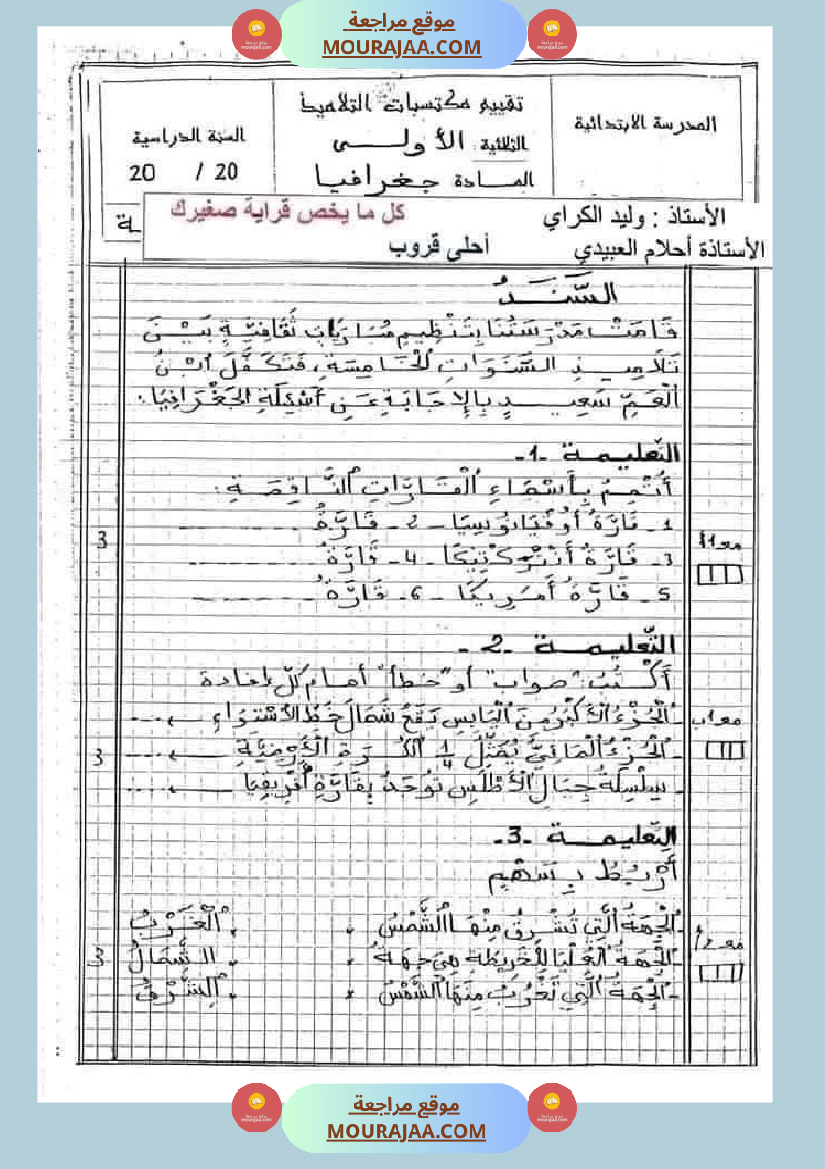 موقع مراجعة
MOURAJAA.COM
المدرسة الابتدائية
تقييم مكتسبات التلاميذ
الثلاثية الأولى
المادة جغرافيا
السنة الدراسية
20 / 20
الأستاذ : وليد الكراي
كل ما يخص قراية صغيرك
الأستاذة أحلام العبيدي
أحلى قروب
السَّنَدُ
قَامَتْ مَدْرَسَتُنَا بِتَنْظِيمِ مُبَارَيَاتٍ ثَقَافِيَّةٍ بَيْنَ
تَلَامِيذِ السَّنَوَاتِ الْخَامِسَةِ، فَتَكَفَّلَ ابْنُ
الْعَمِّ سَعِيدٍ بِالإِجَابَةِ عَنِ أَسْئِلَةِ الجَغْرَافِيَا:
التّعليمة -1-
أُتْمِمُ بِأَسْمَاءِ الْقَارَّاتِ النَّاقِصَةِ:
1- قَارَّةُ أُوقْيَانُوسِيَا - 2- قَارَّةُ ..........
3- قَارَّةُ أَنْتَرْكْتِيكَا - 4- قَارَّةُ ..........
5- قَارَّةُ أَمْرِيكَا - 6- قَارَّةُ ..........
3
التّعليمة -2-
أَكْتُبُ "صواب" أو "خطأ" أمام كلّ إفادة
- الْجُزْءُ الأَكْبَرُ مِنَ الْيَابِسِ يَقَعُ شَمَالَ خَطِّ الاسْتِوَاءِ .....
- الْجُزْءُ الْمَائِيُّ يُمَثِّلُ 1/4 الْكُرَةِ الْأَرْضِيَّةِ .....
- سِلْسِلَةُ جِبَالِ الْأَطْلَسِ تُوجَدُ بِقَارَّةِ أَفْرِيقِيَا .....
3
التّعليمة -3-
أَرْبِطُ بِسَهْمٍ
- الْجِهَةُ الَّتِي تُشْرِقُ مِنْهَا الشَّمْسُ . . الْغَرْبُ
- الْجِهَةُ الْعُلْيَا لِلْخَرِيطَةِ هِيَ جِهَةُ . . الشَّمَالُ
- الْجِهَةُ الَّتِي تَغْرُبُ مِنْهَا الشَّمْسُ . . الشَّرْقُ
3
موقع مراجعة
MOURAJAA.COM